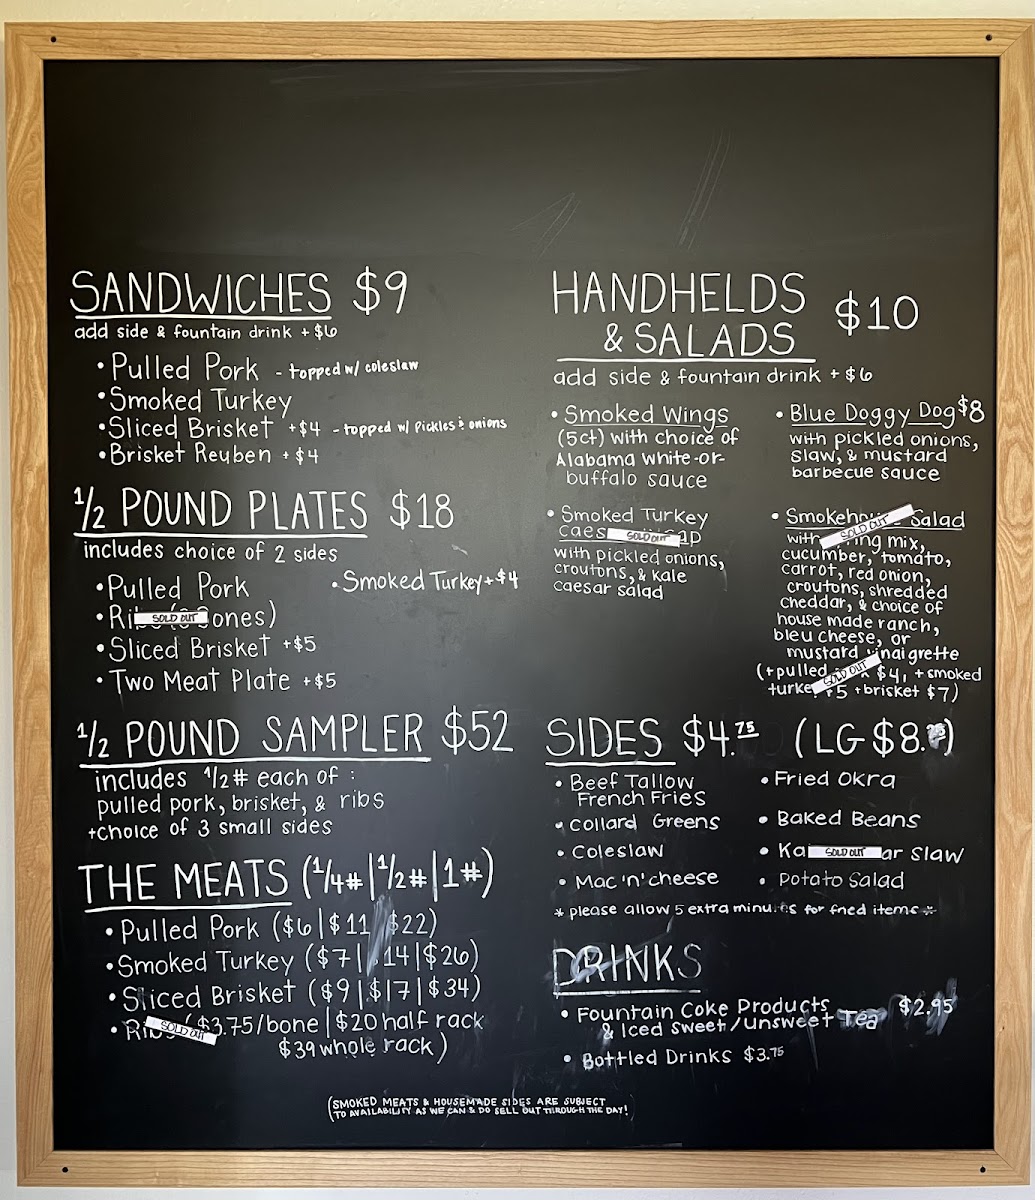 SANDWICHES $9
add side & fountain drink + $6
• Pulled Pork - topped w/ coleslaw
• Smoked Turkey
• Sliced Brisket +$4 - topped w/ pickles & onions
• Brisket Reuben + $4
1/2 POUND PLATES $18
includes choice of 2 sides
• Pulled Pork
• Smoked Turkey + $4
SOLD OUT ones)
• Sliced Brisket +$5
• Two Meat Plate +$5
1/2 POUND SAMPLER $52
includes 1/2# each of :
pulled pork, brisket, & ribs
+choice of 3 small sides
THE MEATS (1/4# | 1/2# | 1#)
• Pulled Pork ($6 | $11 | $22)
• Smoked Turkey ($7 | 14 | $26)
• Sliced Brisket ($9 | $17 | $34)
• Ribs SOLD OUT ($3.75/bone | $20 half rack
$39 whole rack)
HANDHELDS
& SALADS $10
add side & fountain drink + $6
• Smoked Wings
(5ct) with choice of
Alabama white-or-
buffalo sauce
• Smoked Turkey
Caes SOLD OUT
with pickled onions,
croutons, & kale
caesar salad
• Blue Doggy Dog $8
with pickled onions,
slaw, & mustard
barbecue sauce
• Smokehouse Salad
with SOLD OUT mix,
cucumber, tomato,
carrot, red onion,
croutons, shredded
cheddar, & choice of
house made ranch,
bleu cheese, or
mustard vinaigrette
(+pulled SOLD OUT $4, + smoked
turkey +5 +brisket $7)
SIDES $4.75 (LG $8.75)
• Beef Tallow
French Fries
• Collard Greens
• Coleslaw
• Mac 'n' cheese
• Fried Okra
• Baked Beans
• Ka SOLD OUT ar Slaw
• Potato Salad
* please allow 5 extra minutes for fried items *
DRINKS
• Fountain Coke Products
& Iced sweet/unsweet Tea $2.95
• Bottled Drinks $3.75
(SMOKED MEATS & HOUSEMADE SIDES ARE SUBJECT
TO AVAILABILITY AS WE CAN & DO SELL OUT THROUGH THE DAY!)